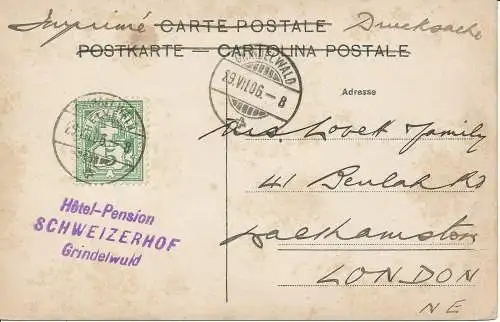 Imprimé CARTE POSTALE Drucksache
POSTKARTE – CARTOLINA POSTALE
GRINDELWALD
29.VII.06.–8
Adresse
Lovett Family
41 Beulah Rd
Walthamstow
LONDON
NE
Hôtel-Pension
SCHWEIZERHOF
Grindelwald